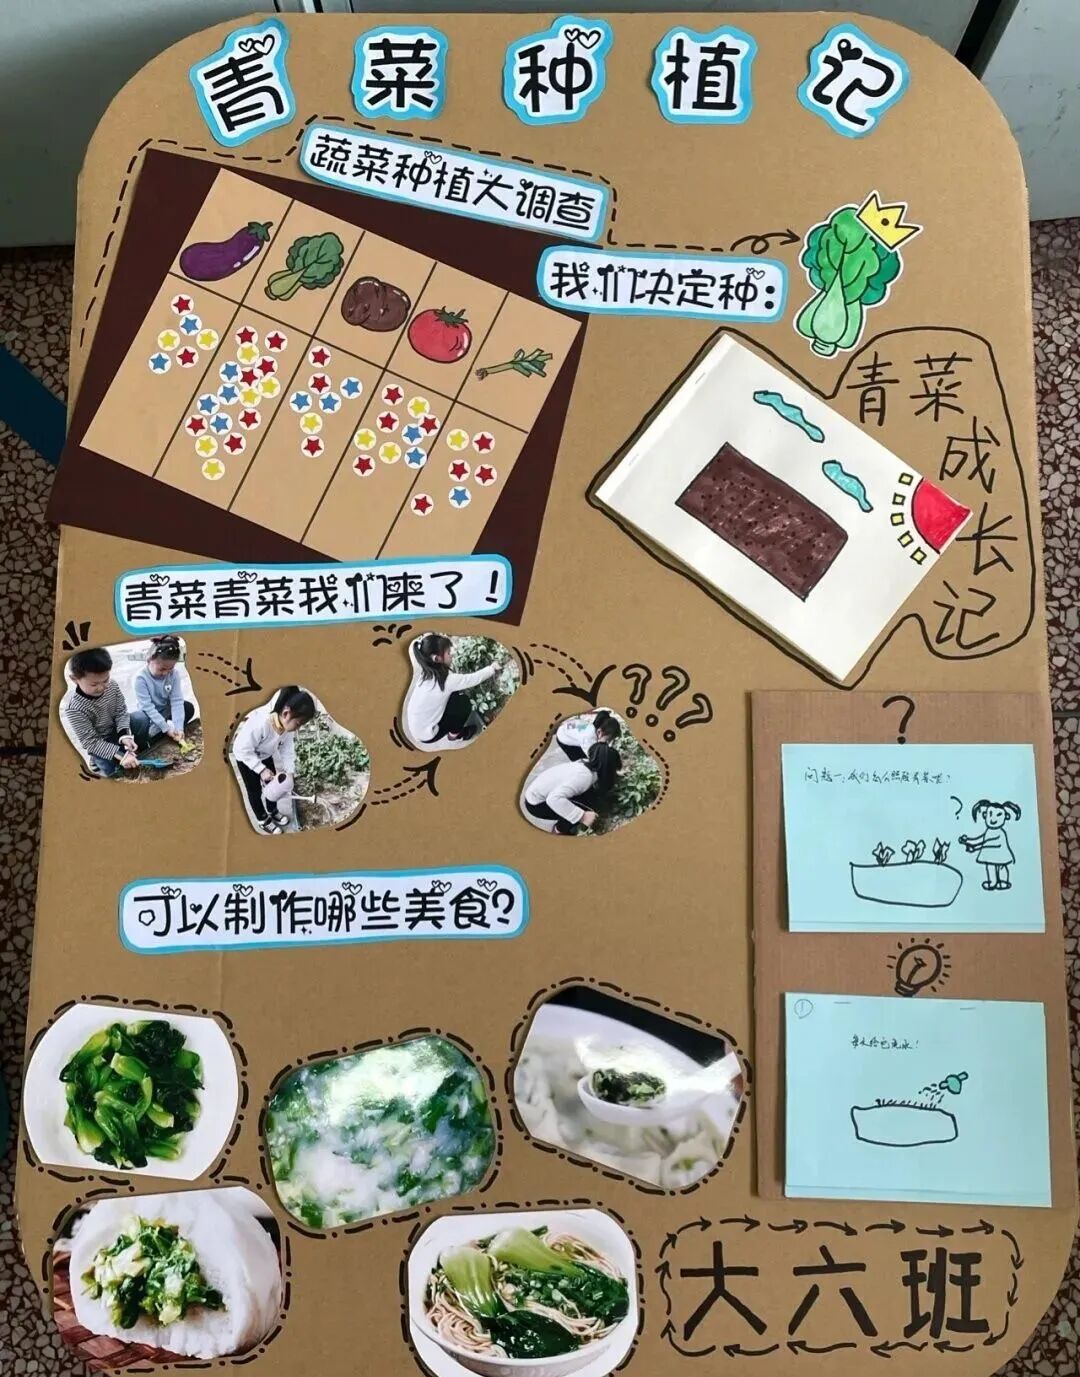 青菜种植记
蔬菜种植大调查
我们决定种:
青菜成长记
青菜青菜我们来了!
???
?
问题一:我们怎么照顾青菜呢?
?
可以制作哪些美食?
①
每天给它浇水!
大六班